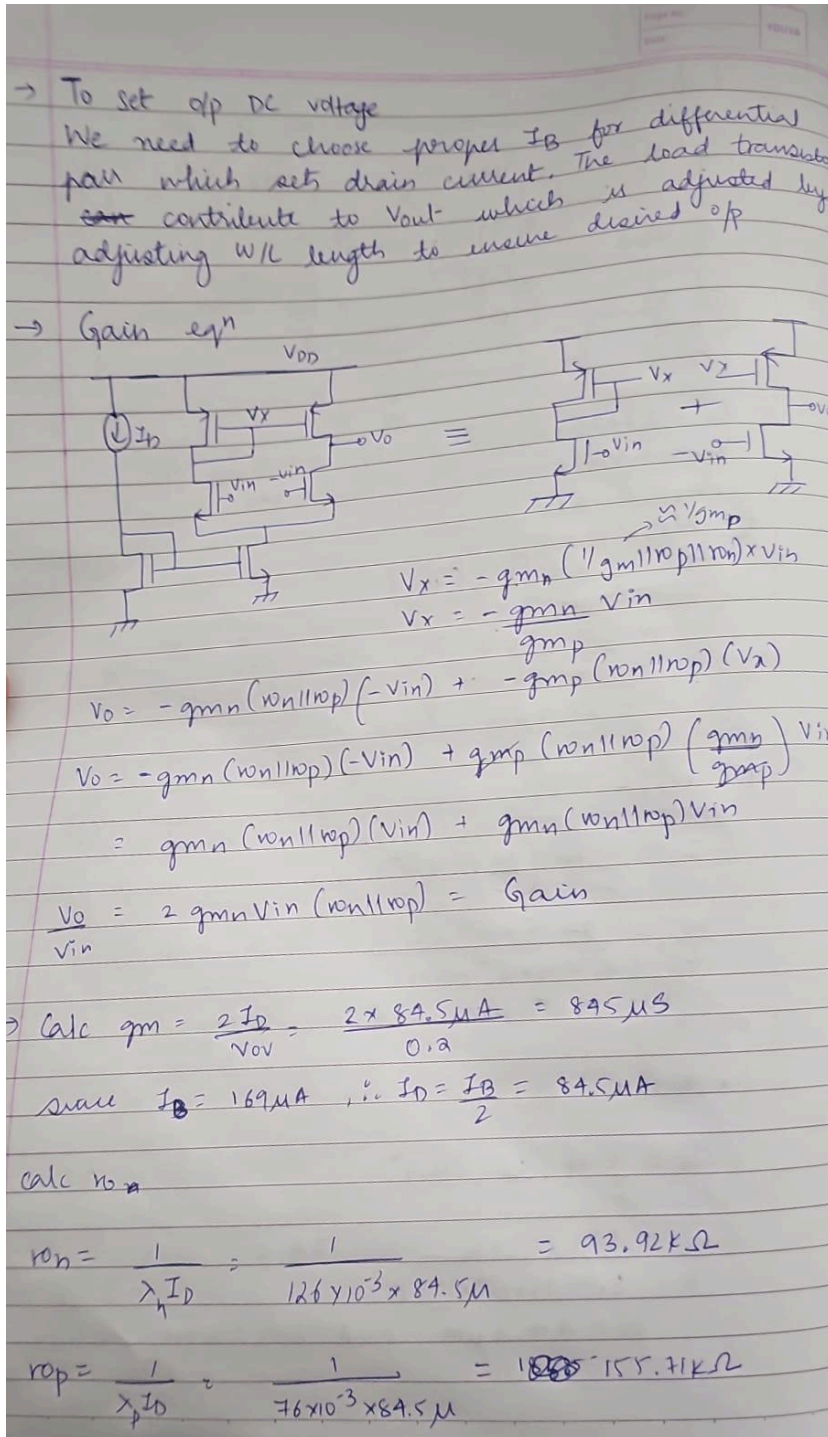 → To set o/p DC voltage
We need to choose proper IB for differential
pair which sets drain current. The load transisto
contribute to Vout which is adjusted by
adjusting W/L length to ensure desired o/p
→ Gain eqⁿ
VDD
ID
Vx
Vo
Vin -Vin
≡
Vx Vx
+
Vo
Vin
-Vin
≈ 1/gmp
Vx = - gmn (1/gm||rop||ron) x Vin
Vx = - gmn/gmp Vin
Vo = - gmn (ron||rop) (-Vin) + - gmp (ron||rop) (Vx)
Vo = - gmn (ron||rop) (-Vin) + gmp (ron||rop) (gmn/gmp) Vin
= gmn (ron||rop) (Vin) + gmn (ron||rop) Vin
Vo/Vin = 2 gmn Vin (ron||rop) = Gain
→ Calc gm = 2 ID/Vov = 2 x 84.5 μA/0.2 = 845 μS
IB = 169 μA, ∴ ID = IB/2 = 84.5 μA
calc ro
ron = 1/λn ID = 1/126 x 10⁻³ x 84.5 μ = 93.92 k Ω
rop = 1/λp ID = 1/76 x 10⁻³ x 84.5 μ = 155.71 k Ω